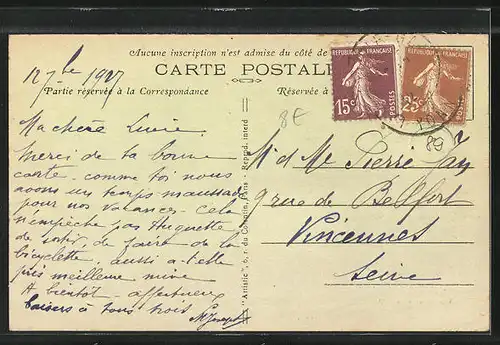 Aucune inscription n'est admise du côté de
CARTE POSTALE
Partie réservée à la Correspondance
Réservée à
12 7bre 1927
Ma chère Lucie.
Merci de ta bonne
carte. comme toi nous
avons un temps maussade
pour nos vacances. Cela
n'empêche pas Huguette
de sortir, de faire de la
bicyclette. aussi a-t-elle
pris meilleure mine
A bientôt. affectueux
baisers à tous trois
"Artistic", 5, r. du Paris - Reprod. interd
REPUBLIQUE FRANÇAISE
15c
POSTES
REPUBLIQUE FRANÇAISE
25c
POSTES
8E
80
M et Mme Pierre
9 rue de Belfort
Vincennes
Seine